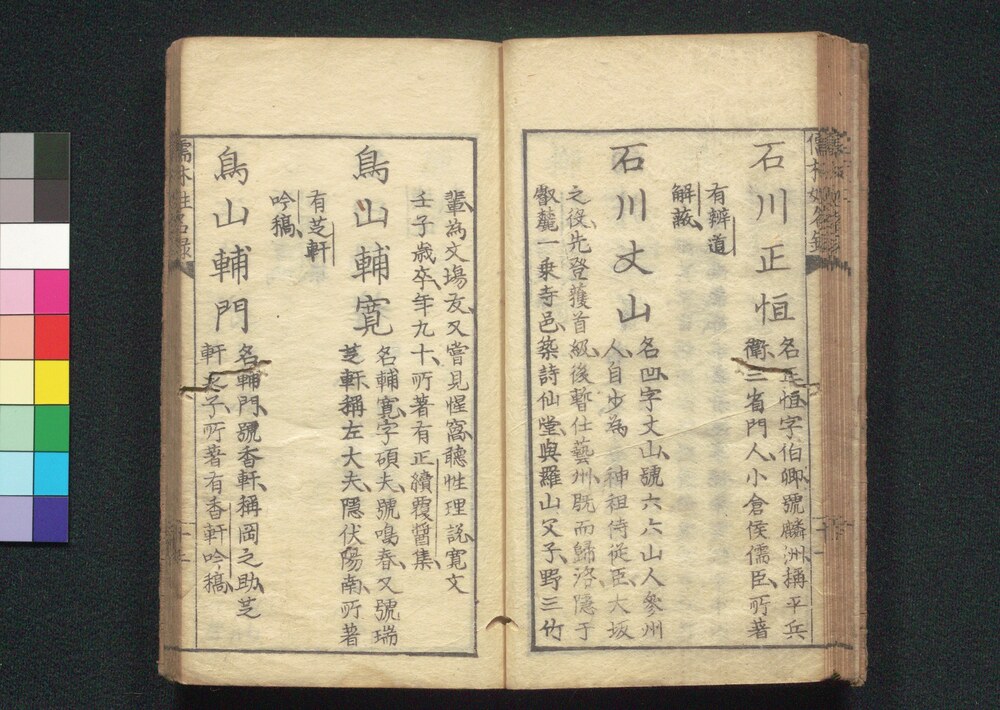 石川正恒
名正恒字伯卿號麟洲稱平兵
衛三省門人小倉侯儒臣所著
有辨道
解蔽
石川丈山
名凹字丈山號六六山人參州
人自少為神祖侍從臣大坂
之役先登獲首級後暫仕藝州既而歸洛隱于
叡麓一乘寺邑築詩仙堂與羅山父子野三竹
輩為文場友又嘗見惺窩聽性理說寬文
壬子歲卒年九十所著有正續覆醬集
鳥山輔寬
名輔寬字碩夫號鳴春又號瑞
芝軒稱左大夫隱伏陽南所著
有芝軒
吟稿
鳥山輔門
名輔門號香軒稱岡之助芝
軒之子所著有香軒吟稿
儒林姓名錄